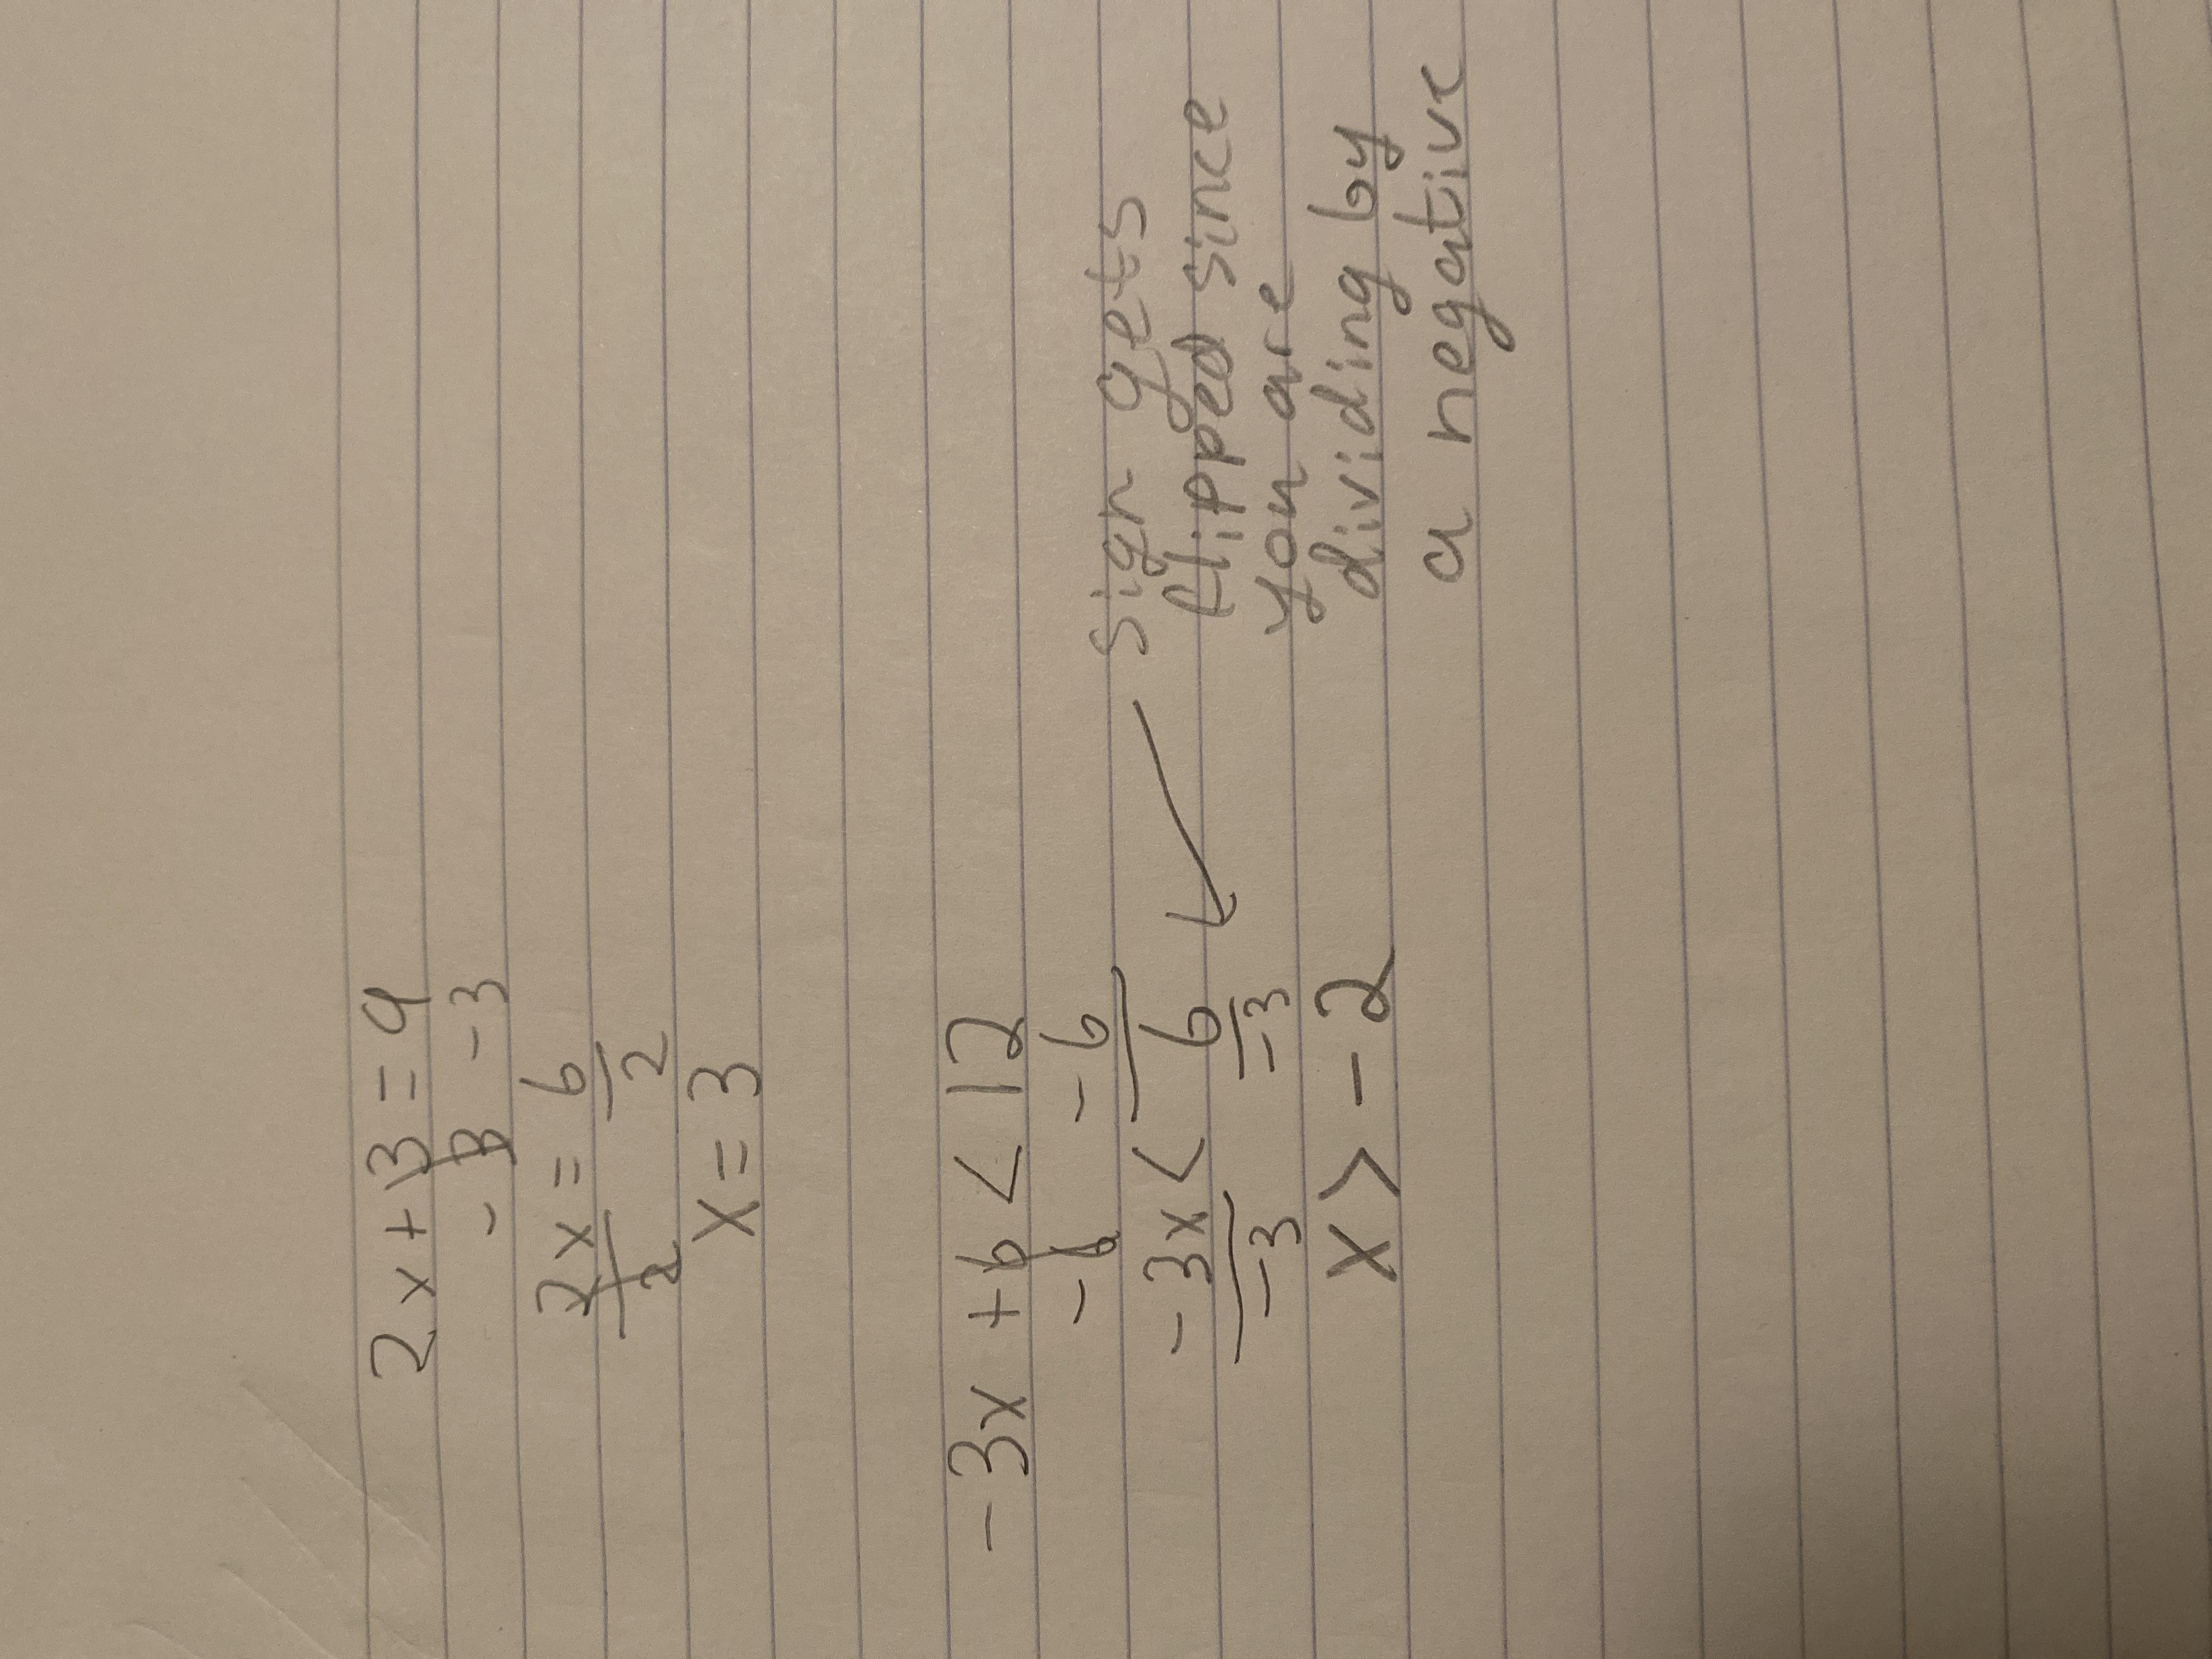 2x+3=9
-3 -3
2x=6
2 2
x=3
-3x+6<12
-6 -6
-3x<6
-3 -3
x>-2
sign gets
flipped since
you are
dividing by
a negative